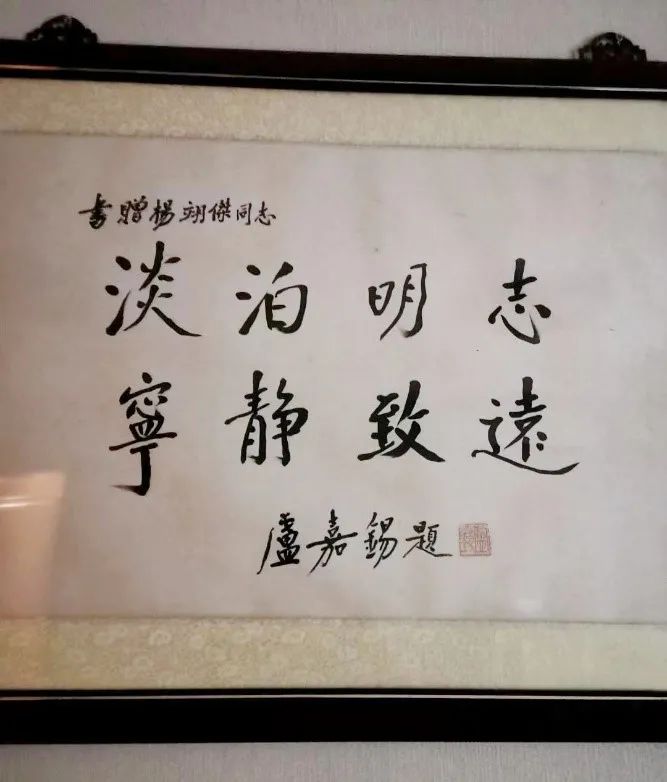 書贈楊翊傑同志
淡泊明志
寧静致遠
盧嘉錫題